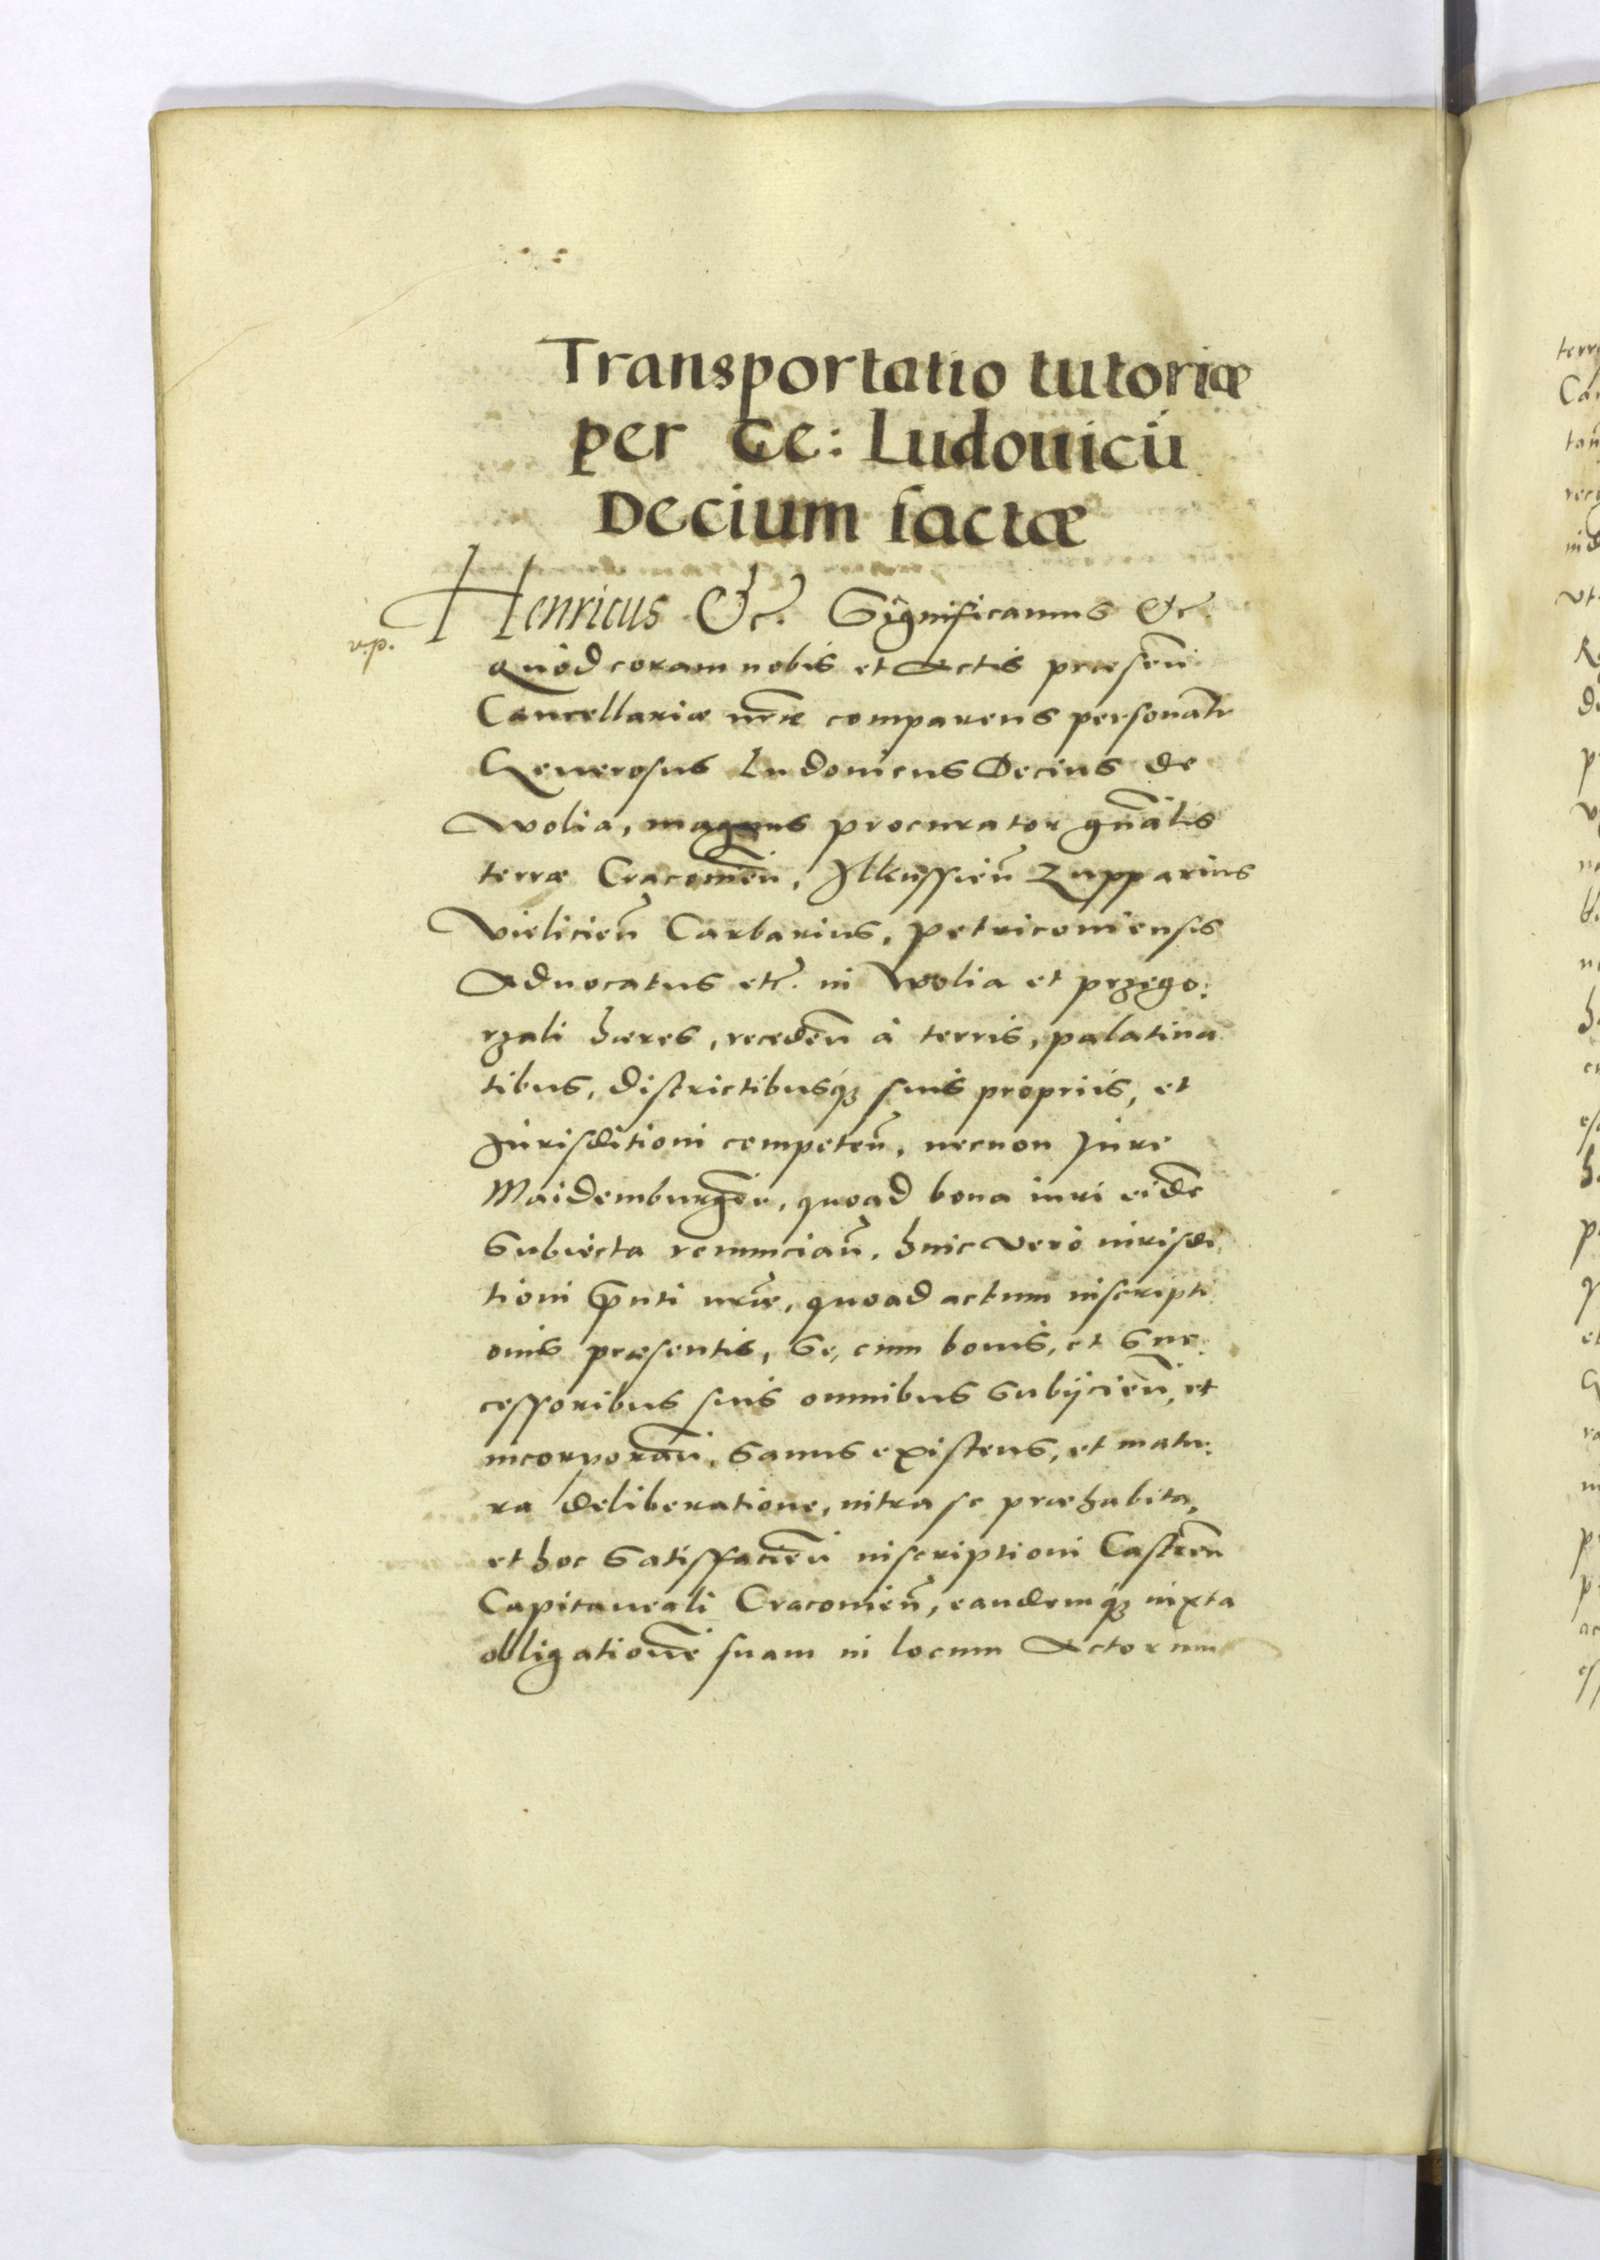 Transportatio tutoriæ
per Ge: Ludouicū
Decium factæ
Henricus &c. Significamus &c.
Quod coram nobis et Actis præsen̄
Cancellariæ nr̄æ comparens personalr̄
Generosus Ludouicus Decius de
Wolia, magnus procurator gn̄alis
terræ Cracouien̄, Ilkussien̄ Zupparius
Vielicien̄ Carbarius, Petricouiensis
Aduocatus etc. in Wolia et Przego:
rzali hæres, receden̄ à terris, palatina
tibus, districtibusq́ꝫ suis propriis, et
Iurisditioni competen̄, necnon Iure
Maidemburgen̄, quoad bona iuri eidē
subiecta renuncian̄, huic verò iurisdi
tioni pn̄ti nr̄æ, quoad actum inscripti
onis præsentis, se, cum bonis, et suc:
cessoribus suis omnibus subijcien̄, et
incorporan̄, sanus existens, et matu:
ra deliberatione, intra se præhabita,
et hoc satisfacien̄ inscriptioni Castren̄
Capitaneali Cracouien̄, eandemq́ꝫ iuxta
obligationē suam in locum Actorum